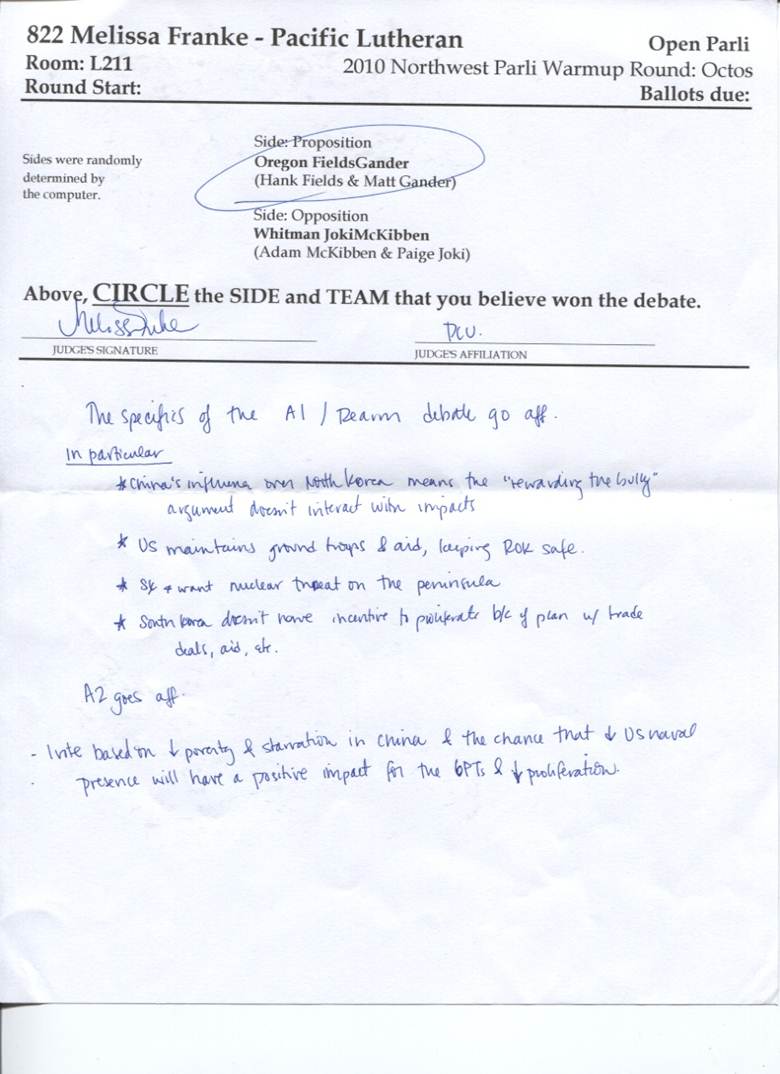 822 Melissa Franke - Pacific Lutheran
Open Parli
Room: L211
2010 Northwest Parli Warmup Round: Octos
Round Start:
Ballots due:
Sides were randomly
determined by
the computer.
Side: Proposition
Oregon FieldsGander
(Hank Fields & Matt Gander)
Side: Opposition
Whitman JokiMcKibben
(Adam McKibben & Paige Joki)
Above, CIRCLE the SIDE and TEAM that you believe won the debate.
JUDGE'S SIGNATURE
JUDGE'S AFFILIATION
The specifics of the A1 / Dearm debate go aff.
In particular
* China's influence over North Korea means the "rewarding the bully"
argument doesn't interact with impacts
* US maintains ground troops & aid, keeping ROK safe.
* SK want nuclear threat on the peninsula
* South Korea doesn't have incentive to proliferate b/c of plan w/ trade
deals, aid, etc.
A2 goes aff.
- I vote based on ↓ poverty & starvation in China & the chance that ↓ US naval
presence will have a positive impact for the 6PTs & ↓ proliferation.